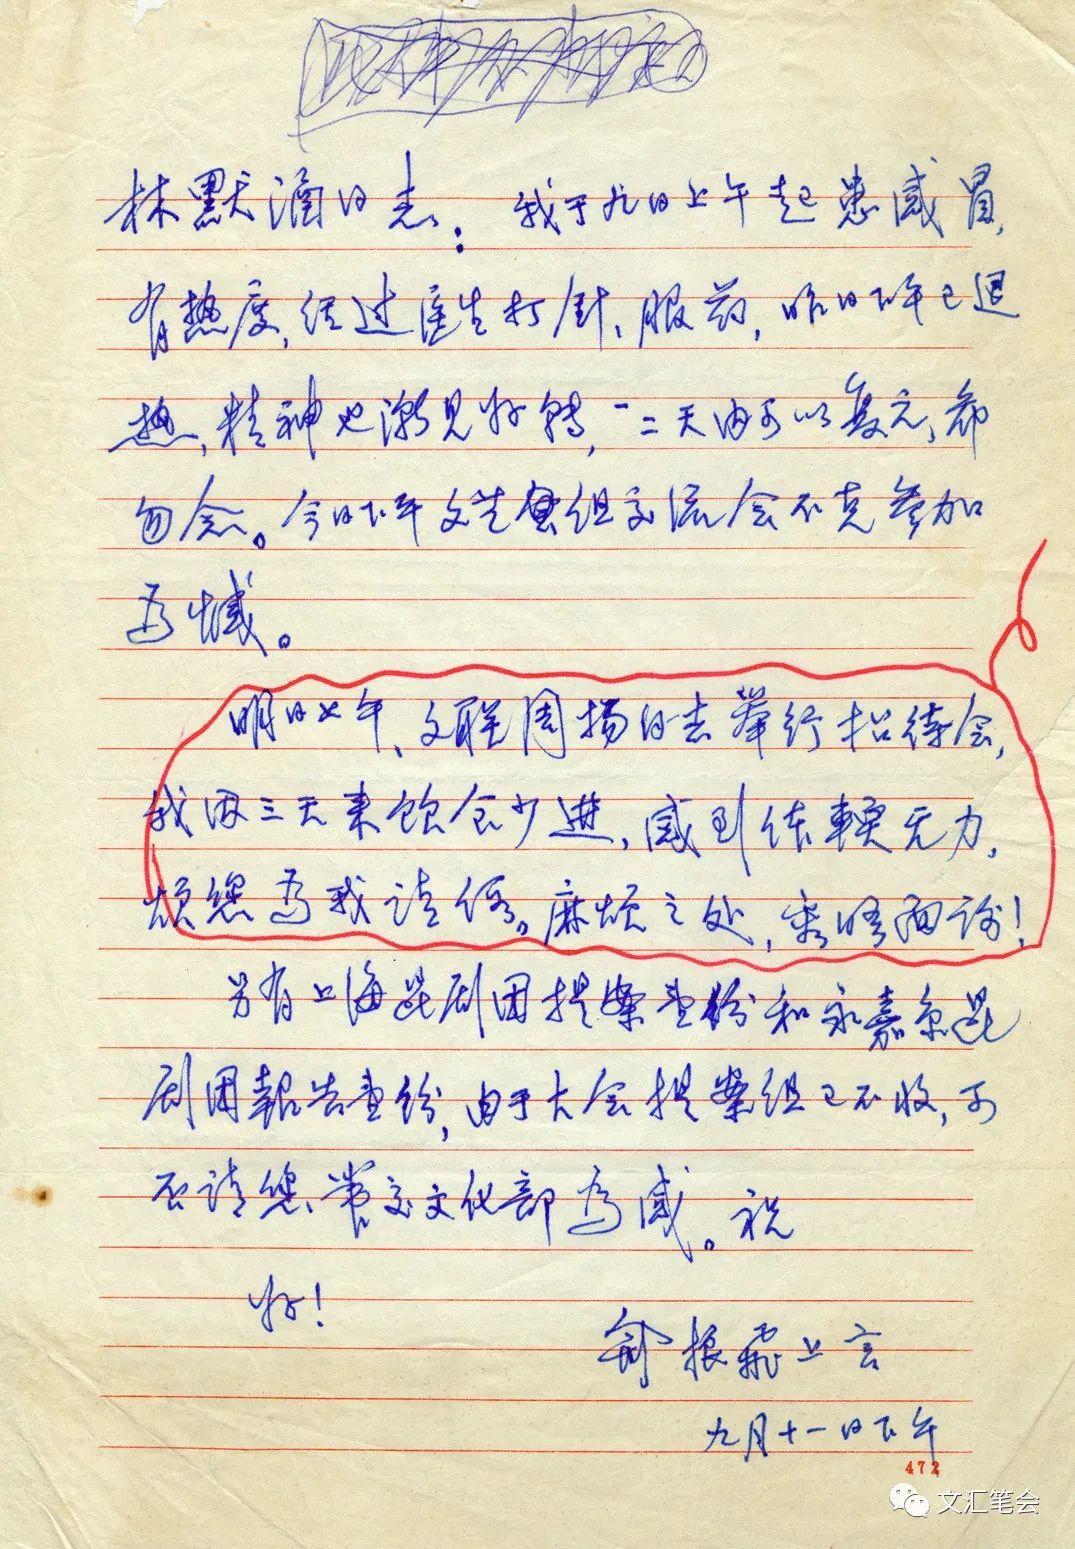 林默涵同志：我于九日上午起患感冒，
有热度，经过医生打针、服药，昨日下午已退
热，精神也渐见好转，一二天内可以复元，希
勿念。今日下午文艺组交流会不克参加
为憾。
明日上午、文联周扬同志举行招待会，
我因三天来饮食少进，感到体软无力，
烦您为我请假。麻烦之处，容后面谢！
另有上海昆剧团提案壹份和永嘉京昆
剧团报告壹份，由于大会提案组已不收，可
否请您、带交文化部为感。祝
好！
俞振飞上言
九月十一日下午
472
文汇笔会